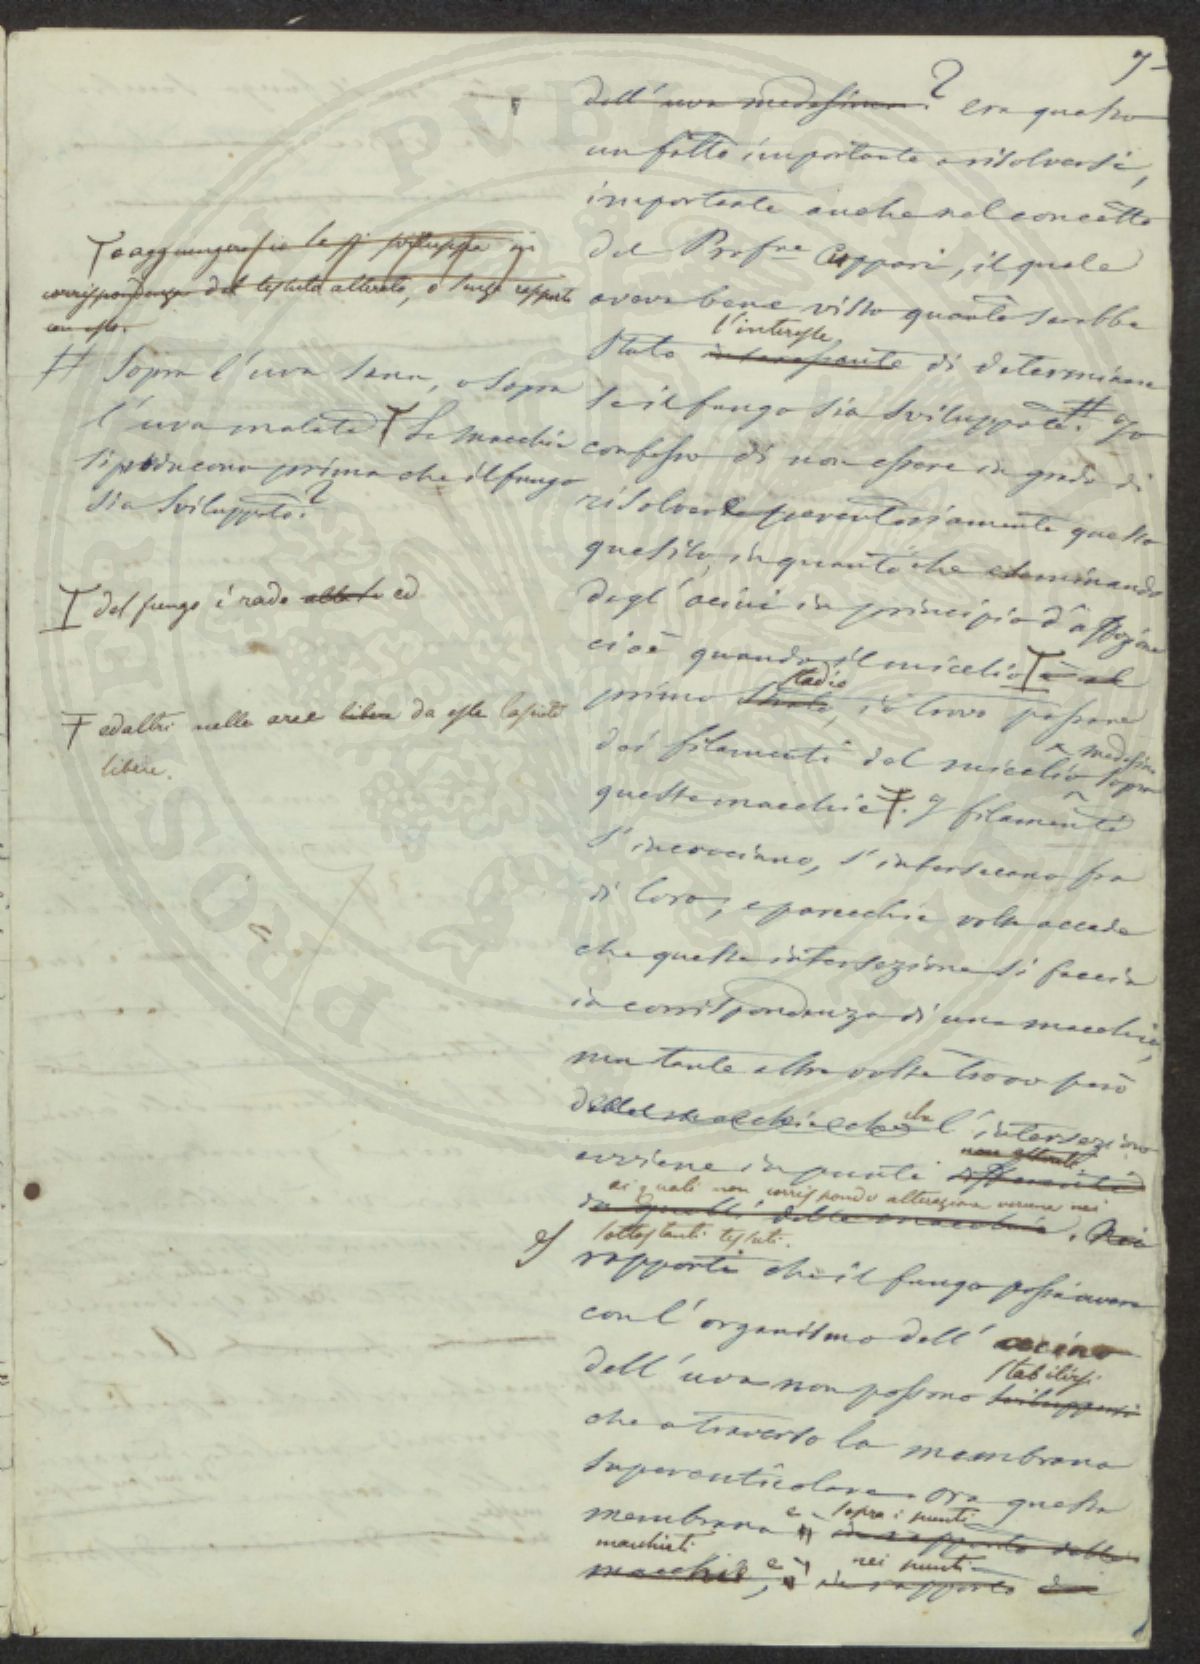 7
dell'uva medesima? era questo
un fatto importante a risolversi,
importante anche nel concetto
del Prof.re Cuppari, il quale
aveva bene visto quanto sarebbe
l'interesse
stato interessante di determinare
se il fungo sia sviluppato # Io
confesso di non essere in grado di
risolvere perentoriamente questo
quesito, in quanto che esaminando
degl'acini in principio d'affezione
cioè quando il micelio è al
stadio
primo stato, io trovo passare
dei filamenti del micelio medesimo sopra
queste macchie. I filamenti
s'incrociano, s'intersecano fra
di loro, e parecchie volte accade
che questa intersezione si faccia
in corrispondenza di una macchia,
ma tante altre volte trovo però
delle macchie che che l'intersezione
non alterati
avviene in punti differenti
ai quali non corrisponde alterazione veruna nei
da quelli delle macchie. Nei
sottostanti tessuti.
rapporti che il fungo possa avere
con l'organismo dell'acino
stabilirsi
dell'uva non possono svilupparsi
che a traverso la membrana
sopracuticolare. Ora questa
e sopra i punti
membrana in rapporto delle
macchiati e nei punti
macchie, in rapporto
e aggiungerò se le si sviluppa in
corrispondenza del tessuto alterato, o senza rapporto
con esso.
# Sopra l'uva sana, o sopra
l'uva malata Le macchie
si producono prima che il fungo
sia sviluppato?
del fungo è rado ed
ed altri nelle aree libere da esse lasciate
libere.